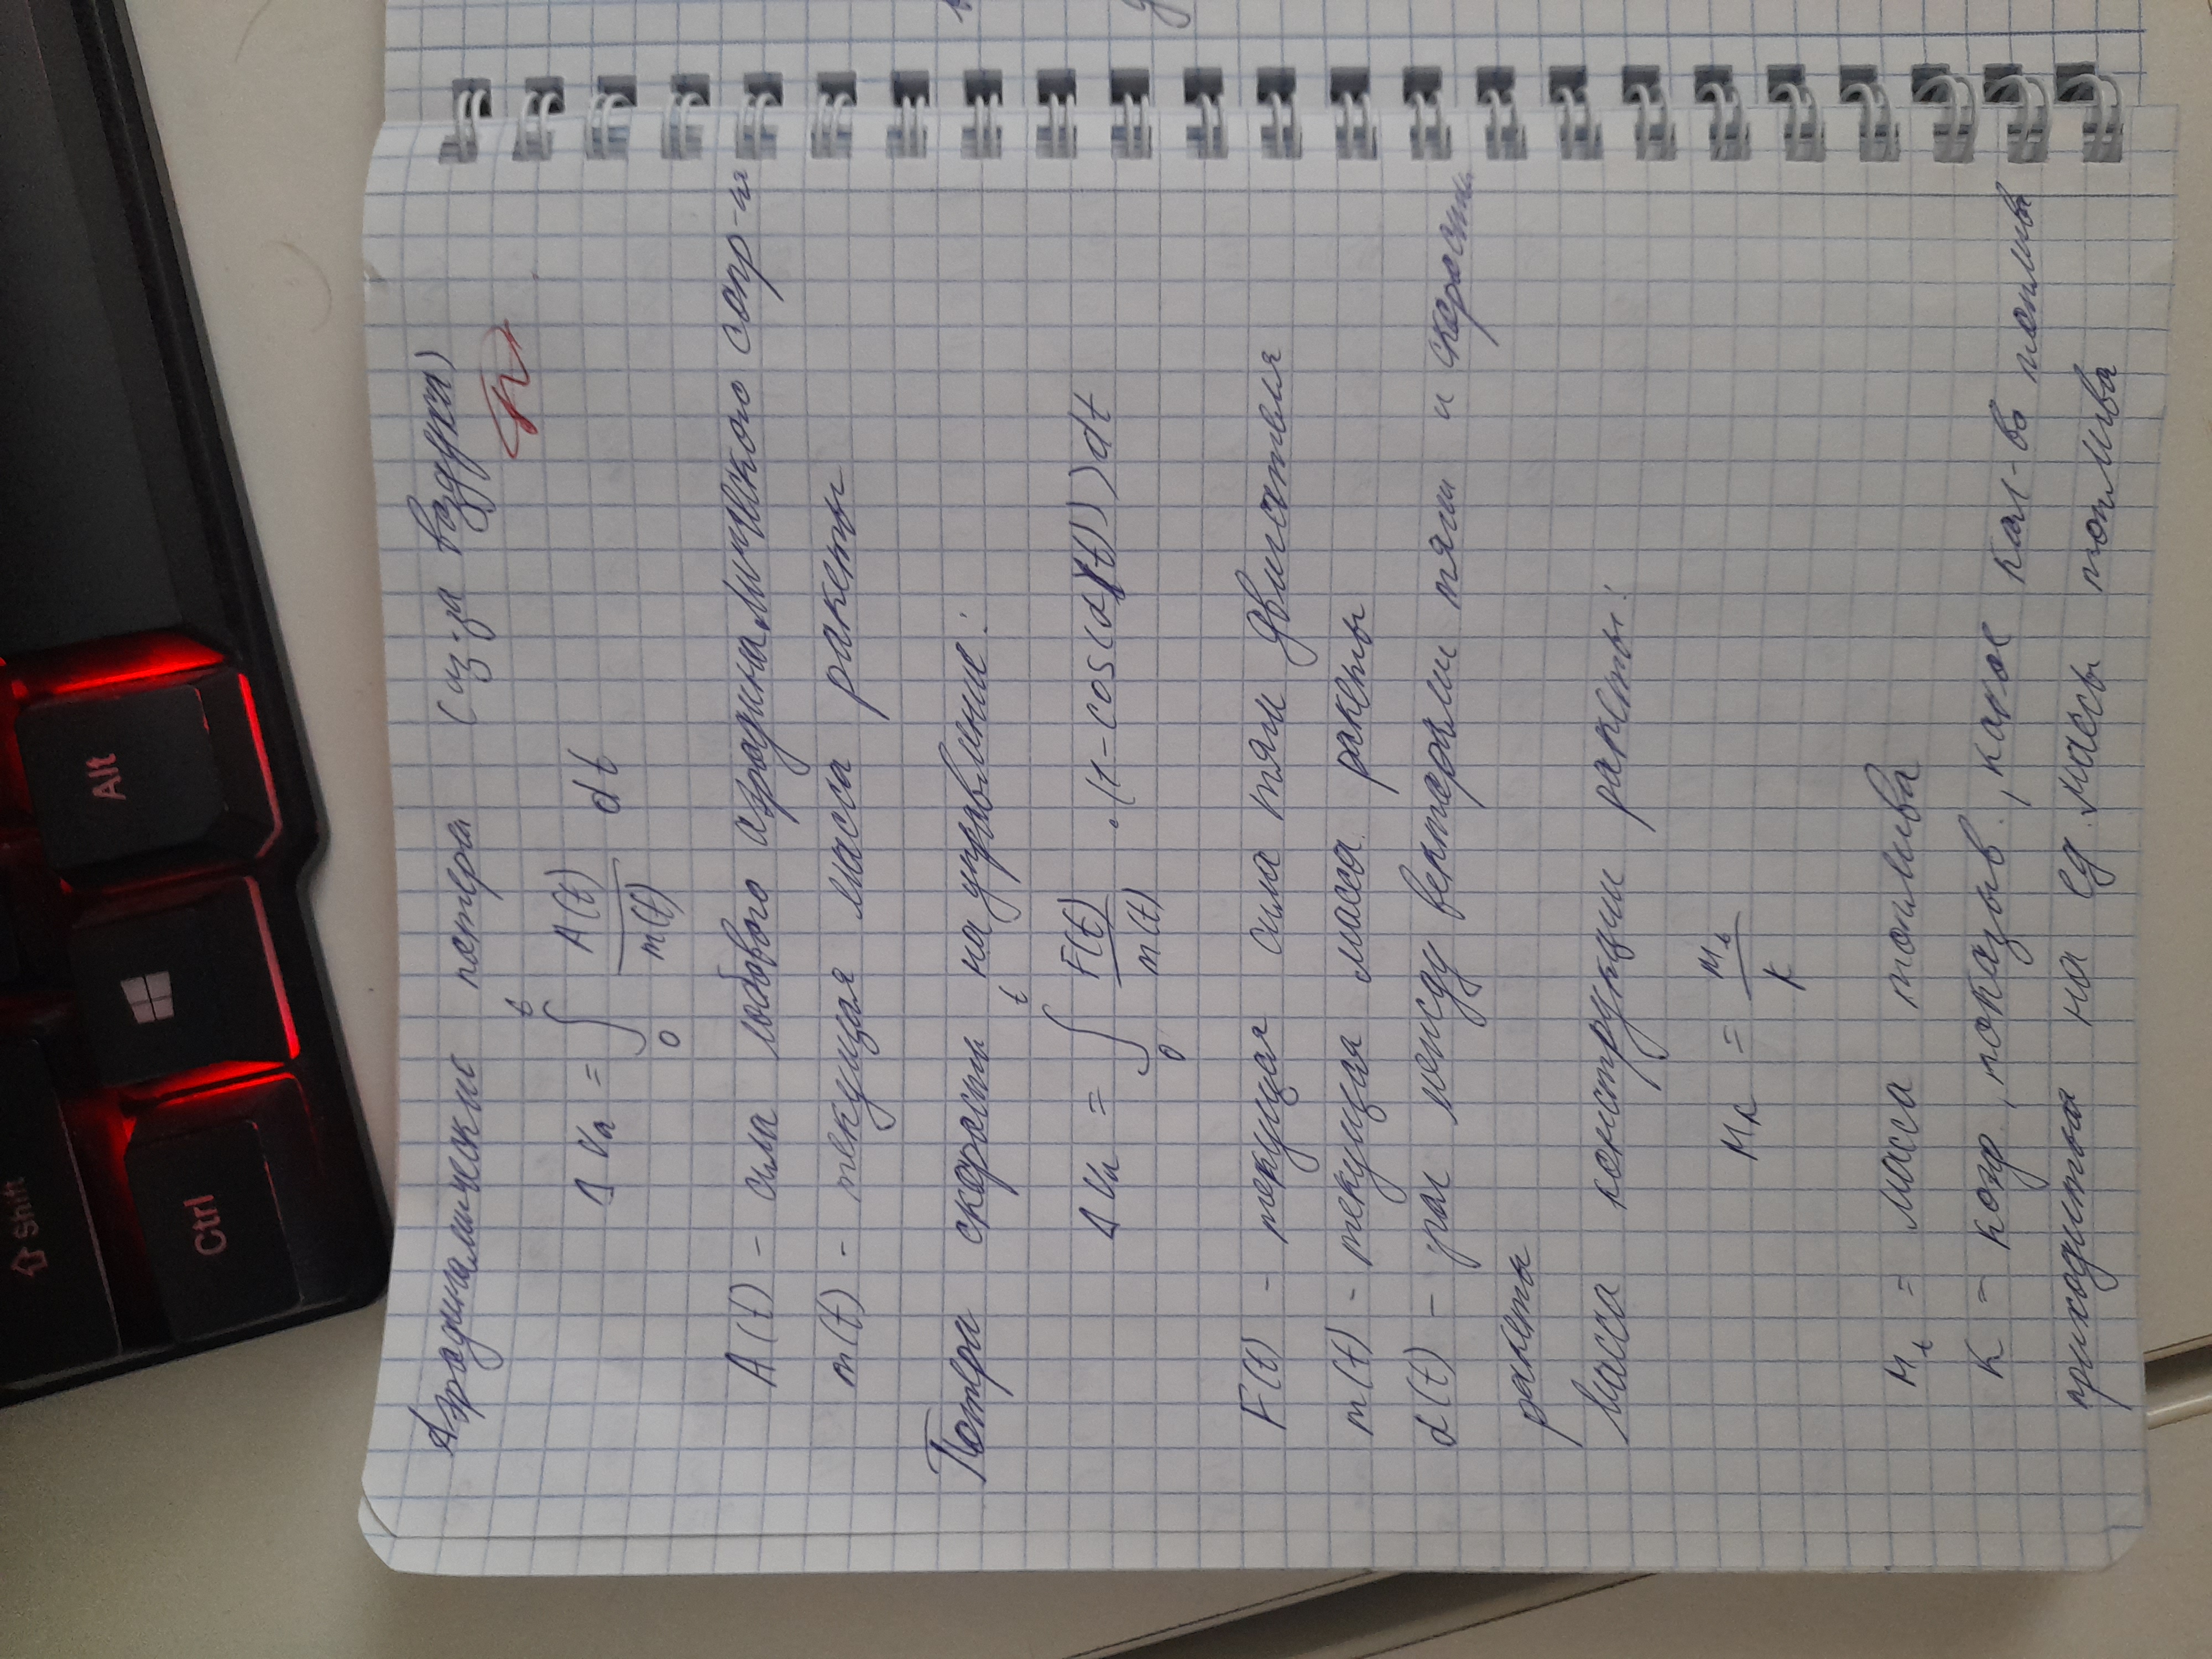 Shift
Ctrl
Alt
Аэродинамические потери (из-за воздуха)
Δ Va = ∫₀ᵗ A(t)/m(t) dt
A(t) - сила лобового аэродинамического сопр-ия
m(t) - текущая масса ракеты
Потери скорости на управление:
Δ Vu = ∫₀ᵗ F(t)/m(t) · (1 - cos(α(t))) dt
F(t) - текущая сила тяги двигателя
m(t) - текущая масса ракеты
α(t) - угол между векторами тяги и скорости
ракеты
Масса конструкции ракеты:
Mк = Mt/K
Mt = масса топлива
K - коэф, показыв., какое кол-во топлива
приходится на ед. массы топлива